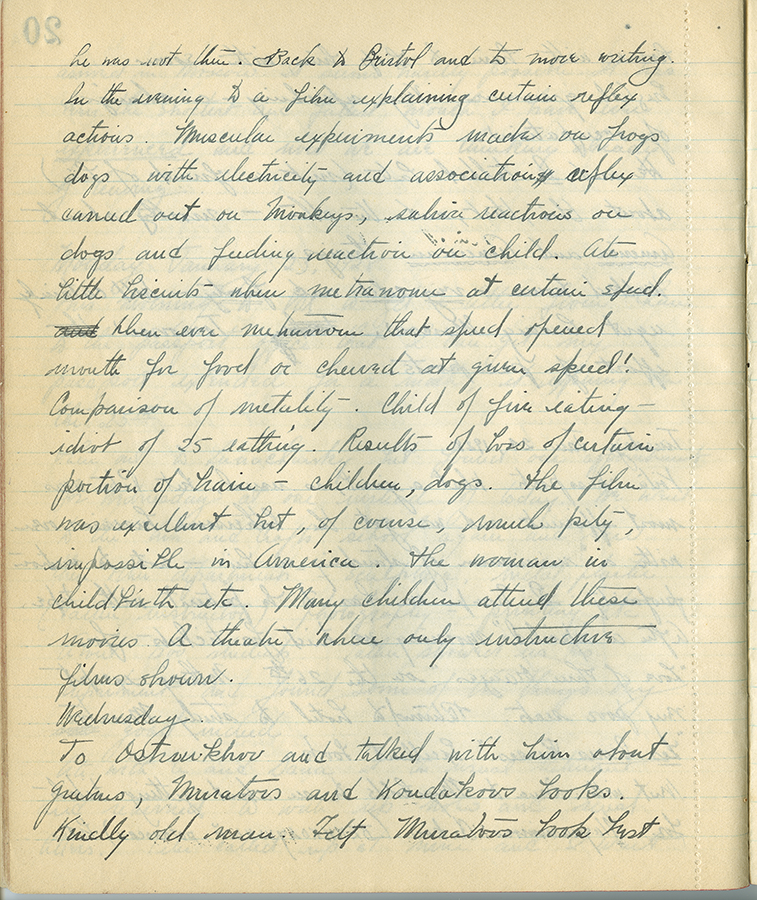 he was not there. Back to Bristol and to more writing.
In the evening to a film explaining certain reflex
actions. Muscular experiments made on frogs
dogs with electricity and association reflex
carried out on monkeys, saliva reactions on
dogs and feeding reaction on child. Ate
little biscuits when metranome at certain speed.
and When ever metranome that speed opened
mouth for food or chewed at given speed!
Comparison of metality. Child of five eating –
idiot of 25 eathing. Results of loss of certain
portion of brain – children, dogs. The film
was excellent but, of course, much pity,
impossible in America. The woman in
childbirth etc. Many children attend these
movies. A theatre where only instructive
films shown.
Wednesday.
To Ostraukhov and talked with him about
Muratovs and Kondakovs books.
Kindly old man. Felt Muratovs book best
20